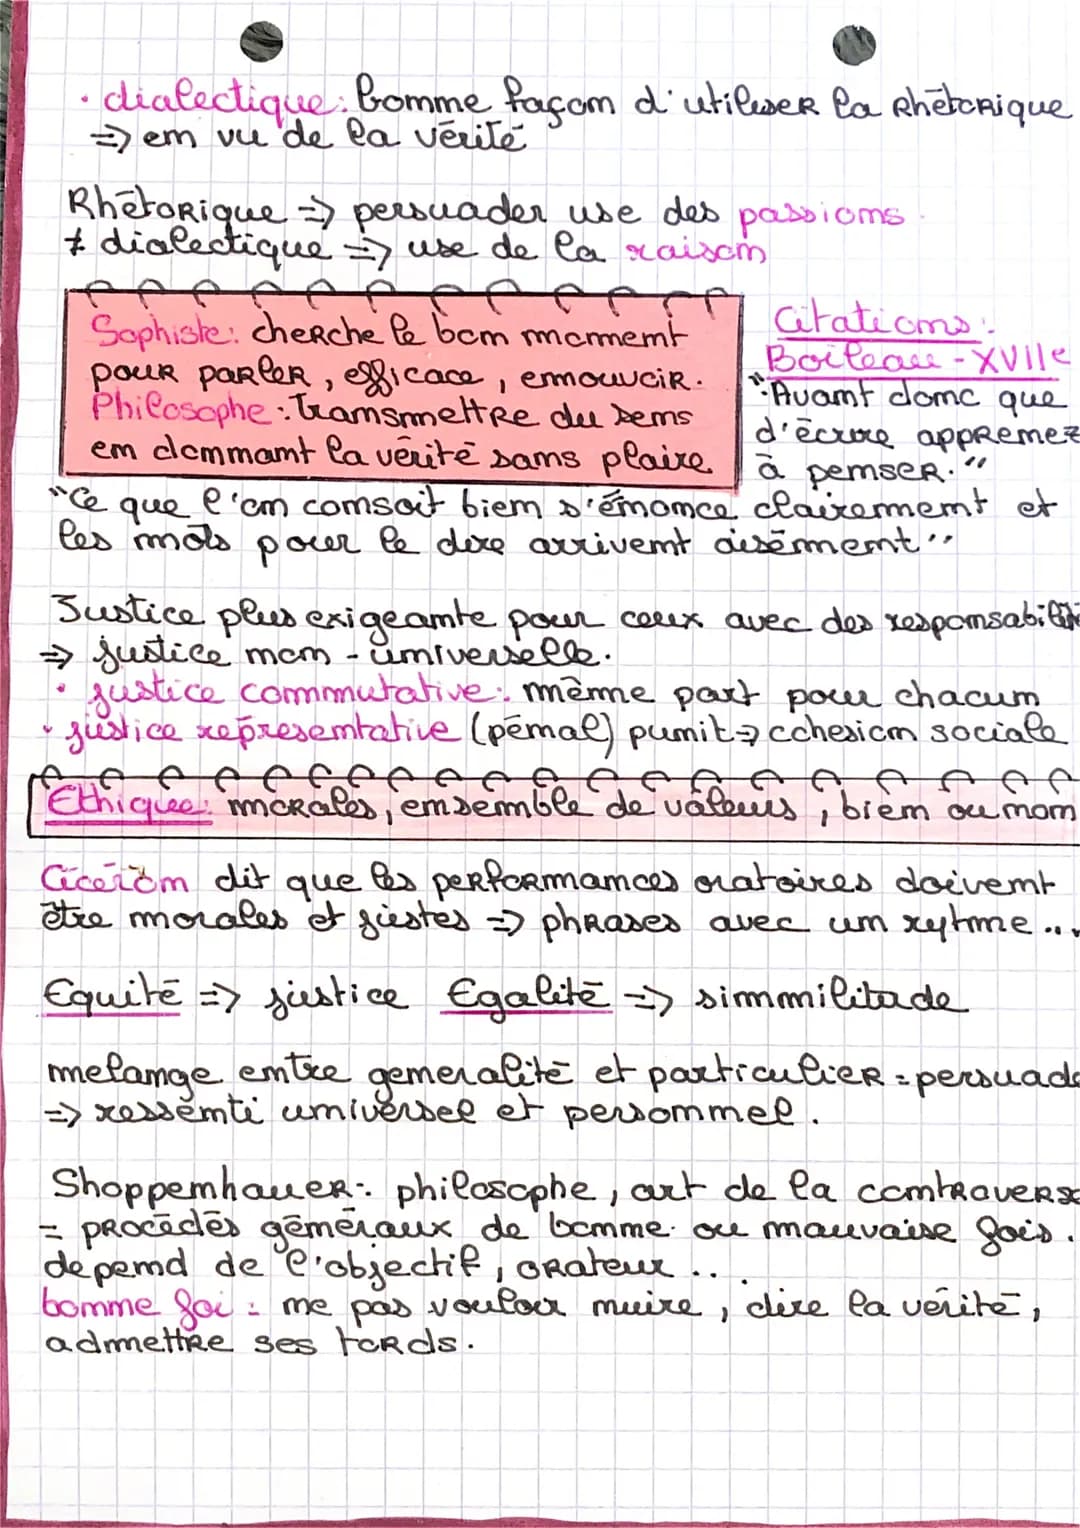 · dialectique: bonne façon d'utiliser la Rhétorique
=> en vu de la vérité
Rhétorique => persuader use des passions.
≠ dialectique => use de la raison
Sophiste: cherche le bon moment
pour parler, efficace, emouvoir.
Philosophe: transmettre du sens
en donnant la vérité sans plaire
Citations:
Boileau - XVIIe
"Avant donc que
d'écrire apprenez
à penser."
"Ce que l'on consoit bien s'énonce clairement et
les mots pour le dire arrivent aisément"
Justice plus exigeante pour ceux avec des responsabilité
=> justice non-universelle.
· justice commutative: même part pour chacun
· justice représentative (pénal) punit => cohesion sociale
Ethique: morales, ensemble de valeurs, bien ou non
Cicéron dit que les performances oratoires doivent
être morales et justes => phrases avec un rytme ...
Equité => justice Egalité => simmilitade
melange entre generalité et particulier = persuade
=> ressenti universel et personnel.
Shoppenhauer: philosophe, art de la contraverse
= procédés généraux de bonne ou mauvaise fois.
depend de l'objectif, orateur ...
bonne foi: ne pas vouloir nuire, dire la vérité,
admettre ses tords.